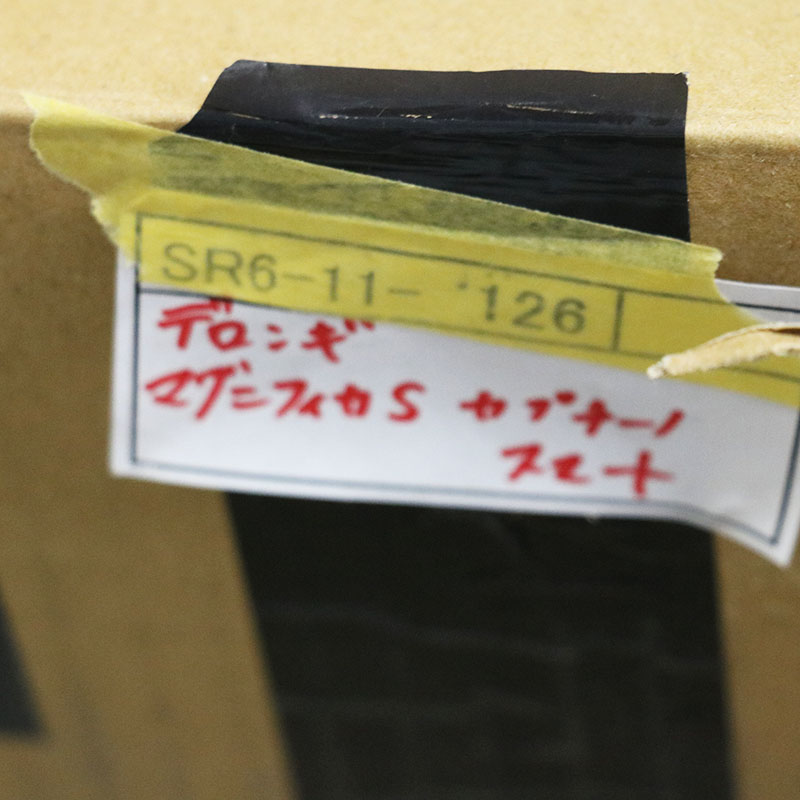 SR6-11- '126
デロンギ
マグニフィカS カプチーノ
スマート